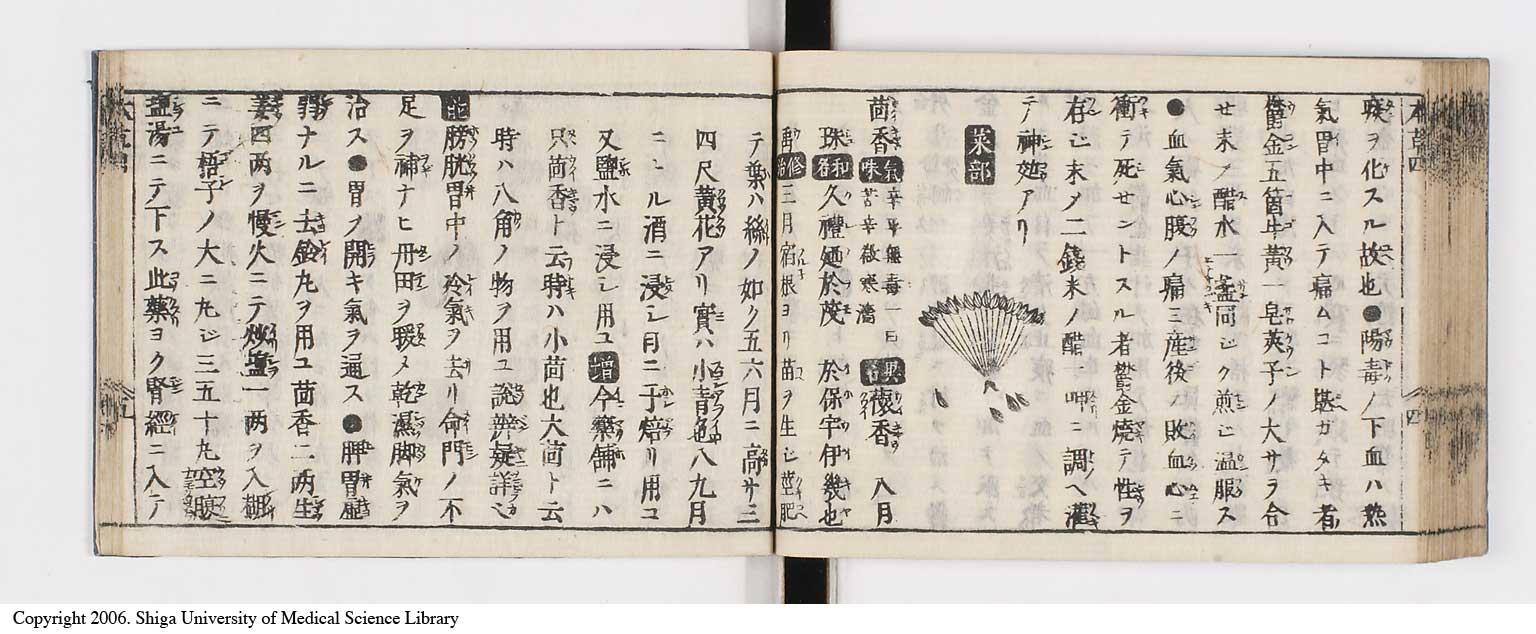 本草四
痰ヲ化スル故也●陽毒ノ下血ハ熱
氣胃中ニ入テ痛ムコト堪ガタキ者
欝金五箇牛黄一皂莢子ノ大サヲ合
せ末ノ醋水一盞同ジク煎ジ温服ス
●血氣心腹ノ痛ミ産後ノ敗血心ニ
衝テ死セントスル者鬱金燒テ性ヲ
存シ末メ二錢米ノ醋一呷ニ調ヘ灌
テ神効アリ
菜部
茴香 氣 辛平無毒一曰 異名 懷香 八月
味 苦辛微寒濇
珠 和名 久禮廼於茂 於保宇伊幾也
再 修治 三月宿根ヨリ苗ヲ生シ莖肥
テ葉ハ絲ノ如ク五六月ニ高サ三
四尺黄花アリ實ハ小青色八九月
ニトル酒ニ浸シ一月ニ干焙リ用コ
又鹽水ニ浸シ用ユ 増 今藥舗ニハ
只茴香ト云時ハ小茴也大茴ト云
時ハ八角ノ物ヲ用ユ説辨疑詳也
能 膀胱胃中ノ冷氣ヲ去リ命門ノ不
足ヲ補ナヒ丹田ヲ暖メ乾濕脚氣ヲ
治ス●胃ヲ開キ氣ヲ通ス●脾胃虚
弱ナルニ去鈴丸ヲ用ユ茴香二两生
姜四两ヲ慢火ニテ炒盬一两ヲ入糊
ニテ梧子ノ大ニ丸ジ三五十丸空腹
盬湯ニテ下ス此藥ヨク腎經ニ入テ
Copyright 2006. Shiga University of Medical Science Library